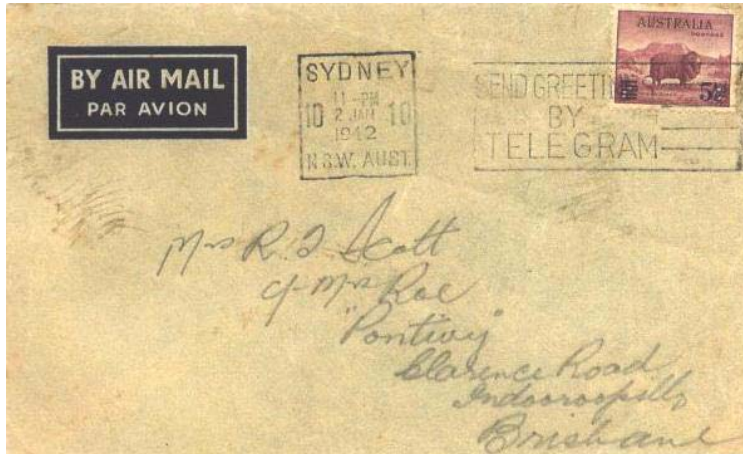 BY AIR MAIL
PAR AVION
SYDNEY
11-PM
10 2 JAN 10
1942
N.S.W. AUST.
SEND GREETIN
BY
TELEGRAM
AUSTRALIA
POSTAGE
Mrs R. J Scott
c/- Mrs Roe
"Pontivy"
Clarence Road
Indooroopilly
Brisbane